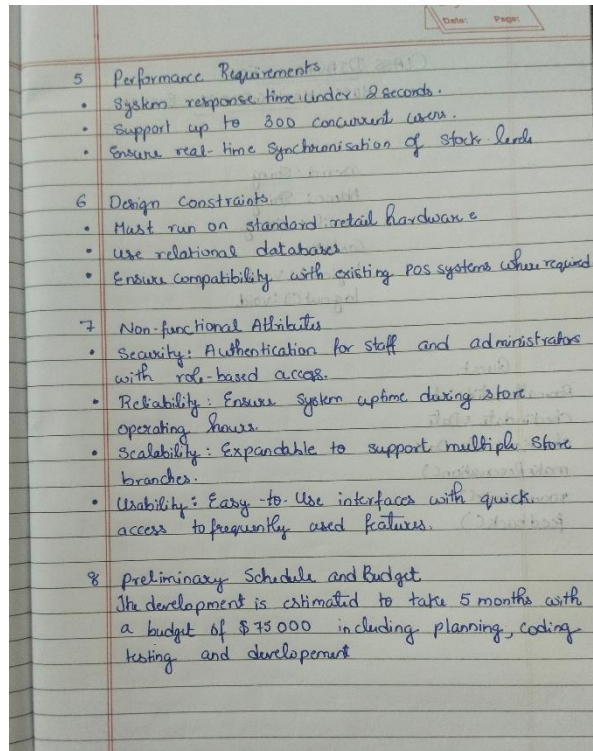 Date: Page:
5 Performance Requirements
• System response time under 2 seconds.
• Support up to 300 concurrent users.
• Ensure real-time synchronisation of stock levels
6 Design Constraints
• Must run on standard retail hardware
• Use relational databases
• Ensure compatibility with existing POS systems where required
7 Non-functional Attributes
• Security: Authentication for staff and administrators
with role-based access.
• Reliability: Ensure system uptime during store
operating hours.
• Scalability: Expandable to support multiple store
branches.
• Usability: Easy-to-Use interfaces with quick
access to frequently used features.
8 Preliminary Schedule and Budget
The development is estimated to take 5 months with
a budget of $75000 including planning, coding
testing and developement